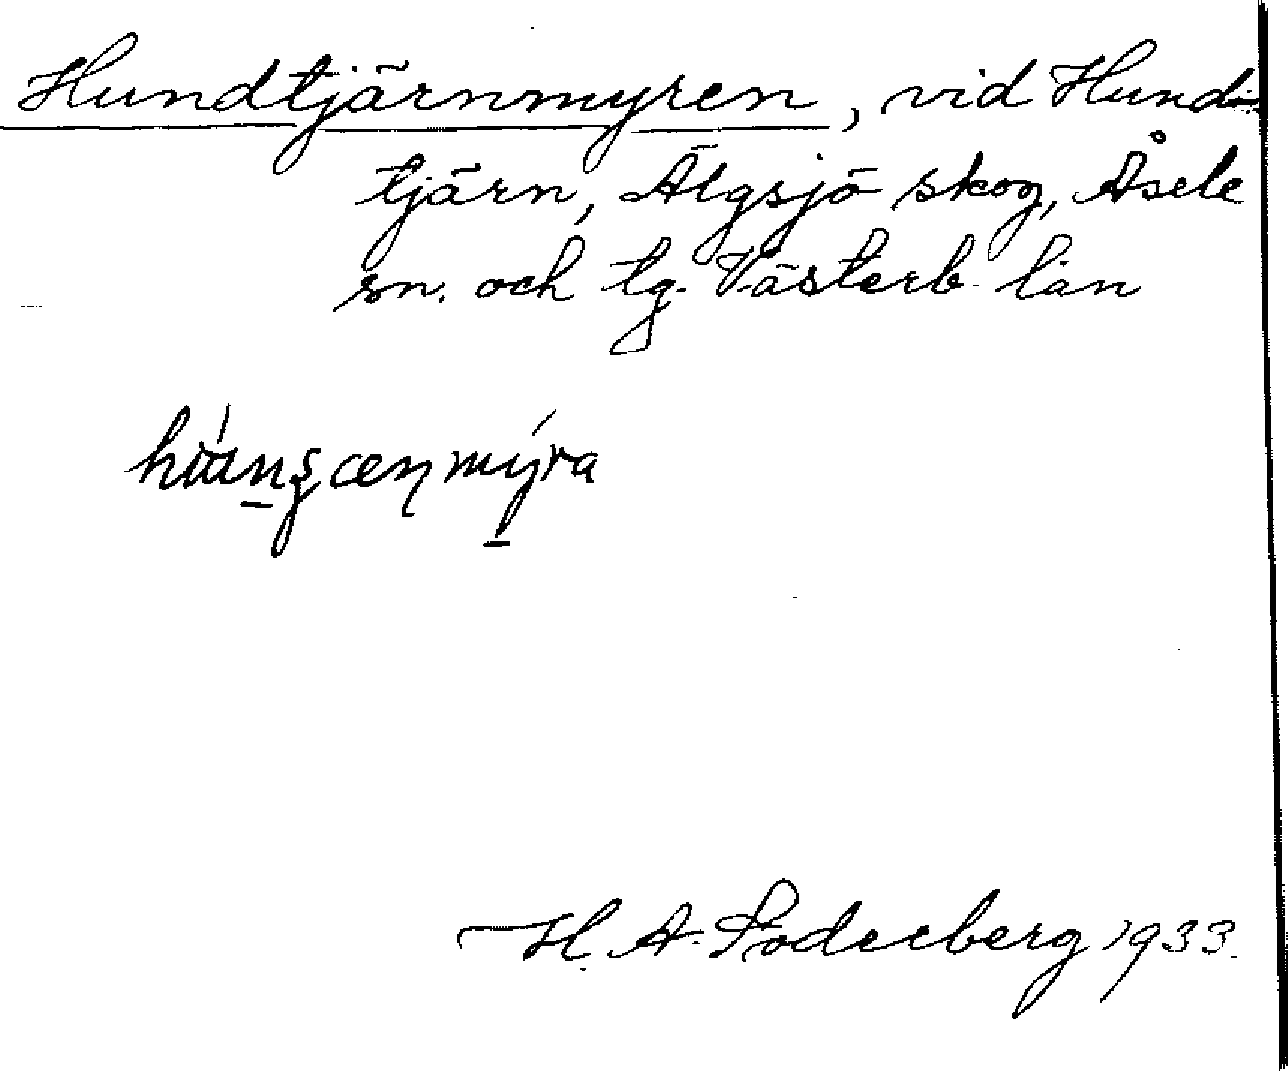 Hundtjärnmyren, vid Hund-
tjärn, Älgsjö skog, Åsele
sn. och tg. Västerb. län
H. A. Söderberg 1933.